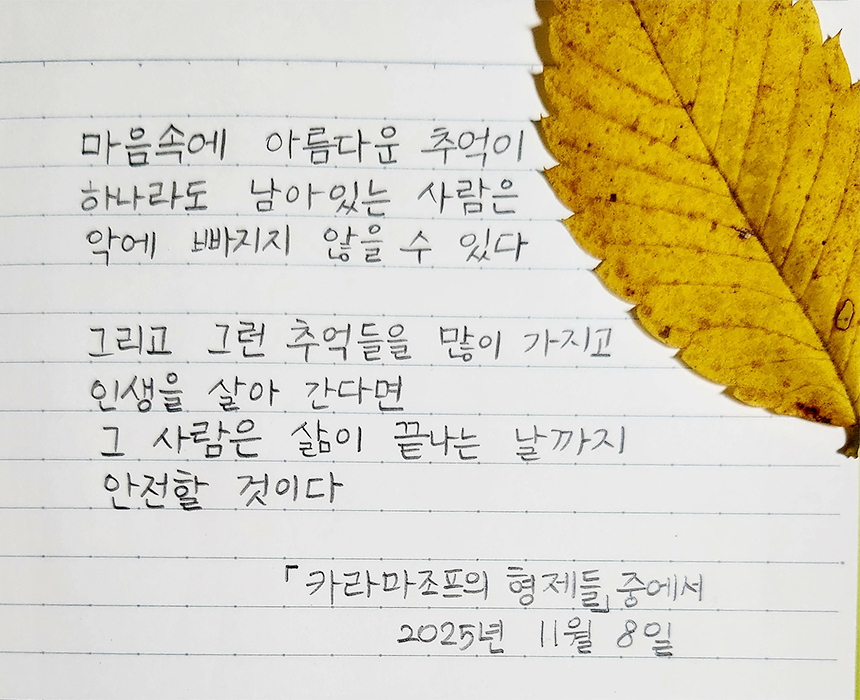 마음속에 아름다운 추억이
하나라도 남아있는 사람은
악에 빠지지 않을 수 있다
그리고 그런 추억들을 많이 가지고
인생을 살아 간다면
그 사람은 삶이 끝나는 날까지
안전할 것이다
「카라마조프의 형제들」 중에서
2025년 11월 8일